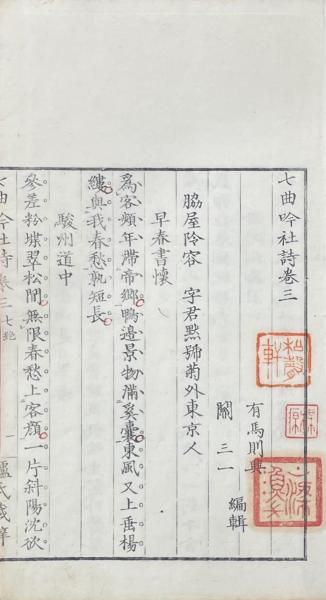 七曲吟社詩卷三
有馬則興
關三一
編輯
脇屋阾容 字君默號菊外東京人
早春書懷
爲客頻年滯帝鄉鴨邊景物滿奚囊東風又上垂楊
縷與我春愁孰短長
駿州道中
參差粉堞翠松間無限春愁上客顏一片斜陽沈欲
七曲吟社詩卷三 七絕 一